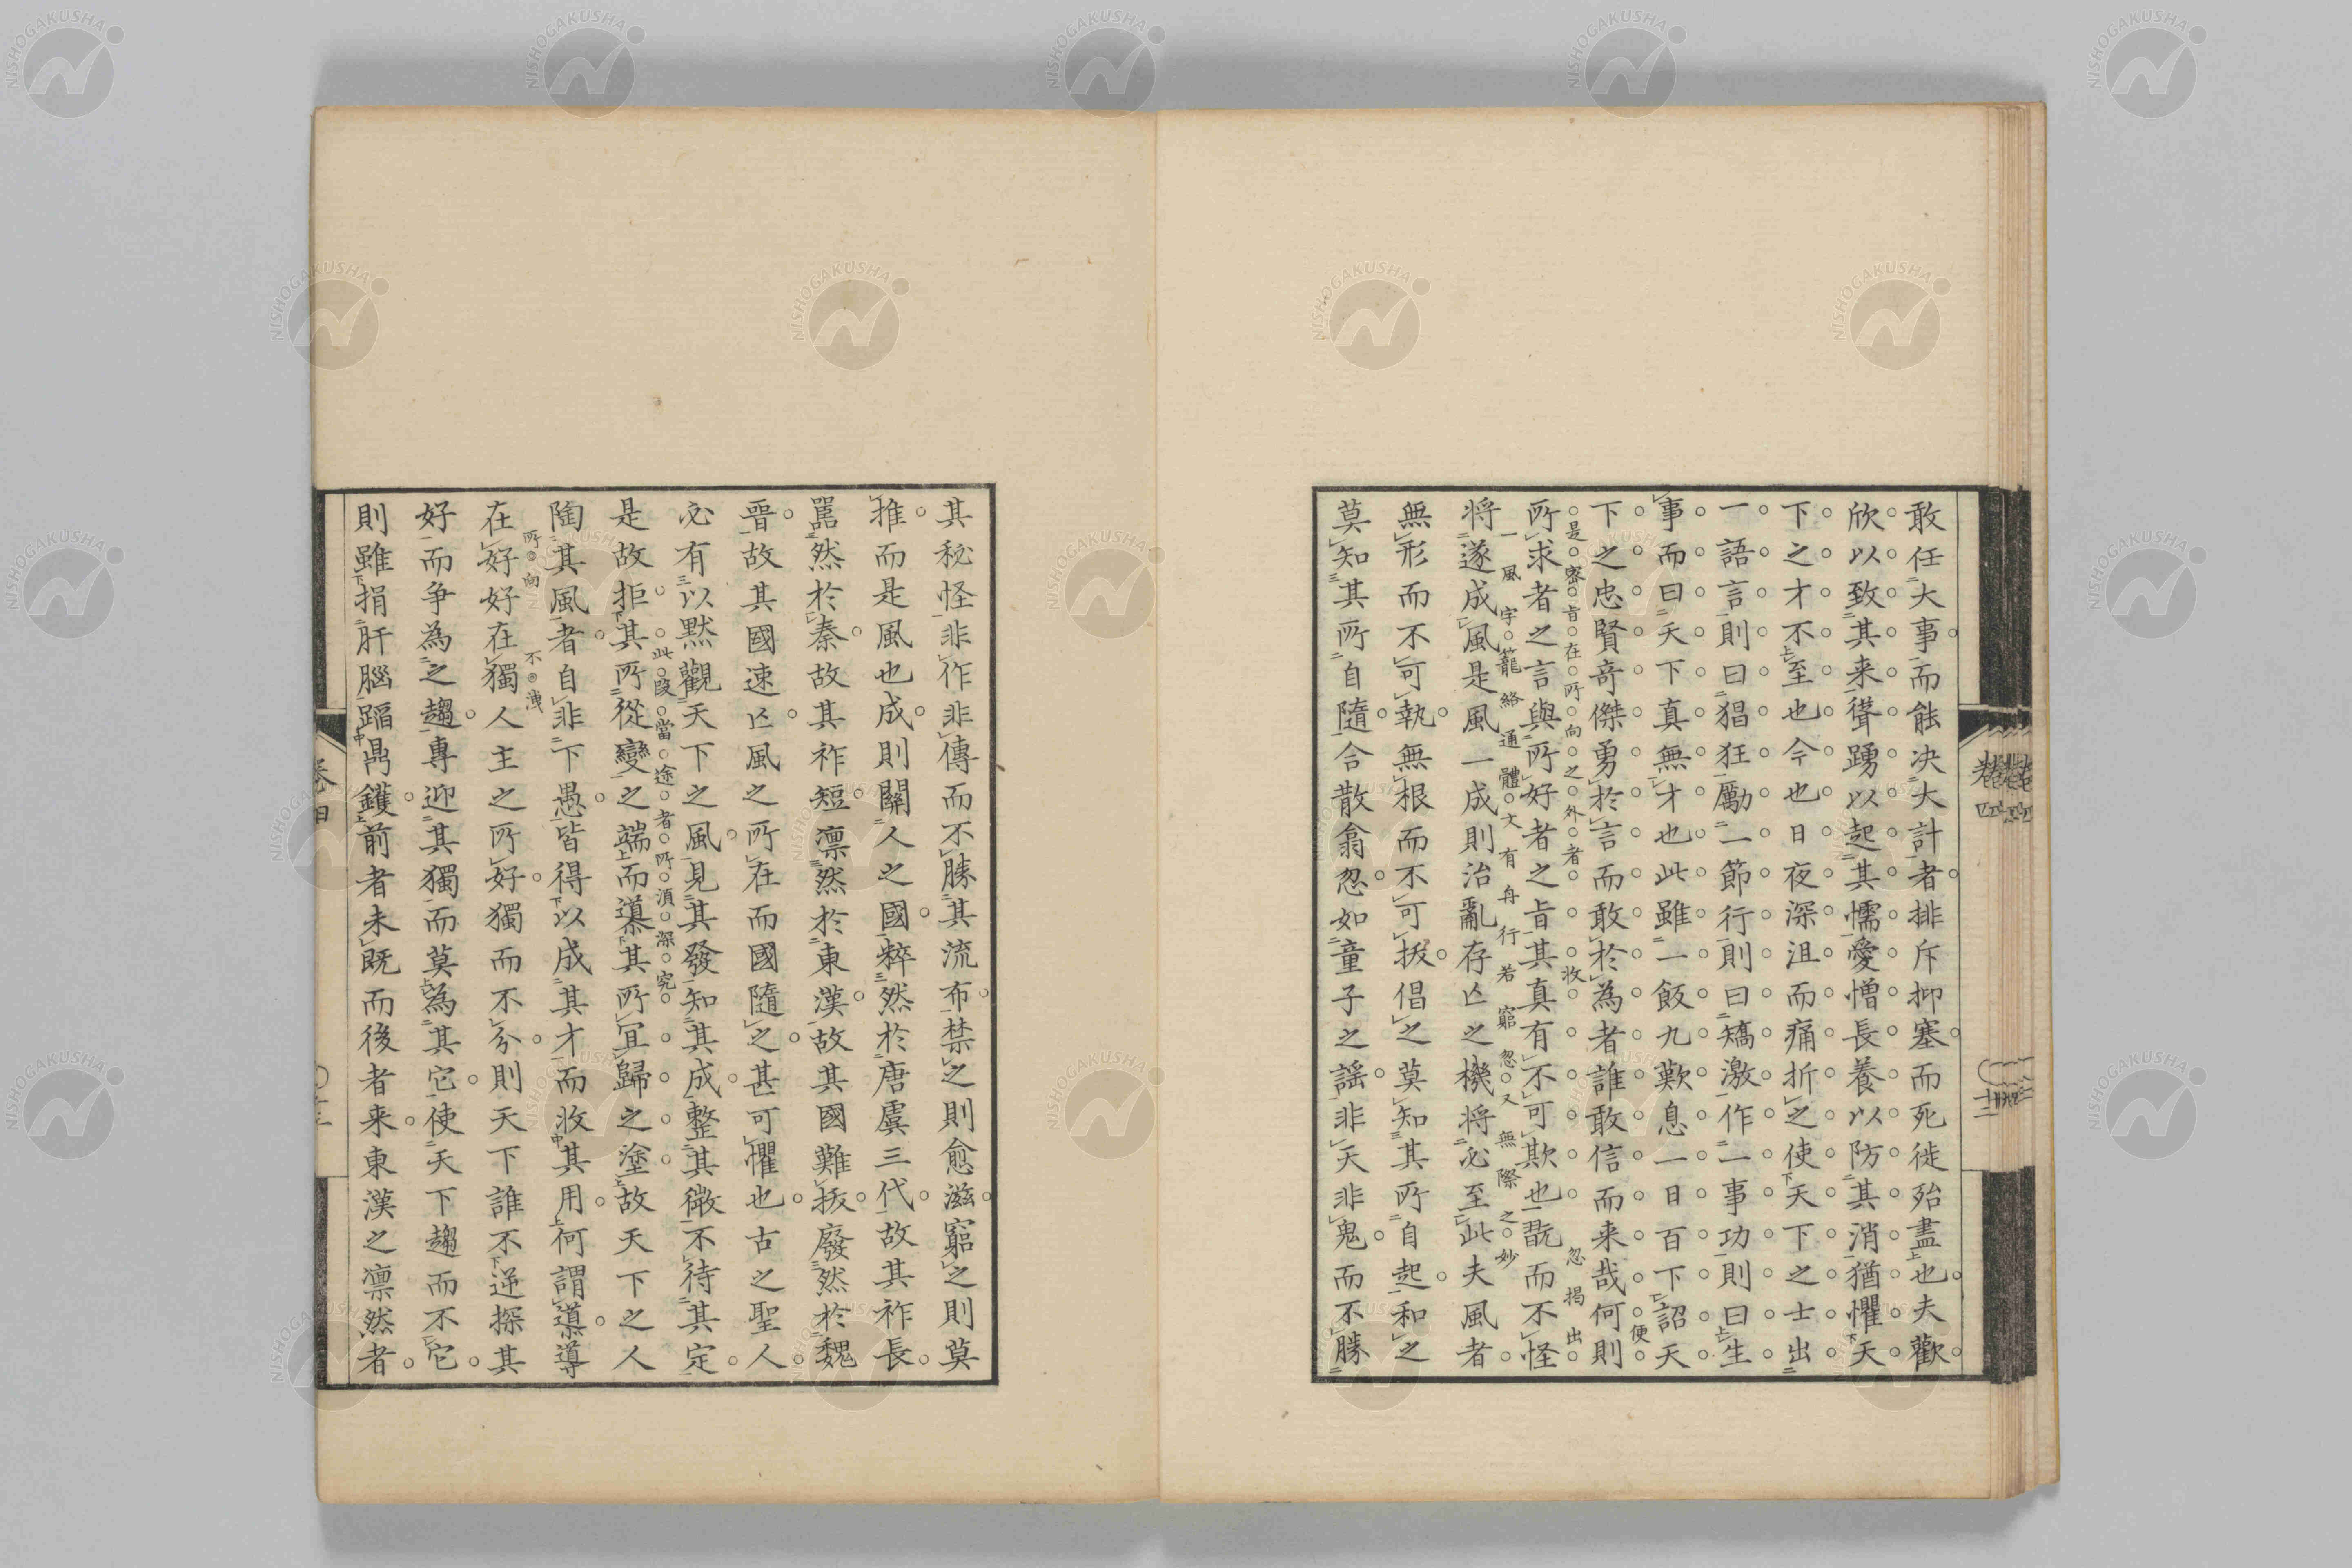 敢任大事而能決大計者排斥抑塞而死徙殆盡也夫歡
欣以致其来聳踴以起其懦愛憎長養以防其消猶懼天
下之才不至也今也日夜深沮而痛折之使天下之士出
一語言則曰猖狂勵一節行則曰矯激作一事功則曰生
事而曰天下真無才也此雖一飯九歎息一日百下詔天
下之忠賢奇傑勇於言而敢於為者誰敢信而来哉何則
便
所求者之言與所好者之旨其真有不可欺也既而不怪
是密旨在所向之外者收
忽揭出
将遂成風是風一成則治亂存亡之機将必至此夫風者
一風字籠絡通體文有舟行若窮忽又無際之妙
無形而不可執無根而不可拔倡之莫知其所自起和之
莫知其所自隨合散翕忽如童子之謡非天非鬼而不勝
其秘怪非作非傳而不勝其流布禁之則愈滋窮之則莫
推而是風也成則關人之國粹然於唐虞三代故其祚長
嚚然於秦故其祚短凛然於東漢故其國難拔廢然於魏
晋故其國速亡風之所在而國隨之甚可懼也古之聖人
必有以黙觀天下之風見其發知其成整其微不待其定
是故拒其所從變之端而導其所宜歸之塗故天下之人
此段當途者所須深究
陶其風者自非下愚皆得以成其才而收其用何謂導導
在好好在獨人主之所好獨而不分則天下誰不逆探其
所向
不洩
好而争為之趨專迎其獨而莫為其它使天下趨而不它
則雖捐肝腦蹈鼎鑊前者未既而後者来東漢之凛然者
卷四
NISHOGAKUSHA